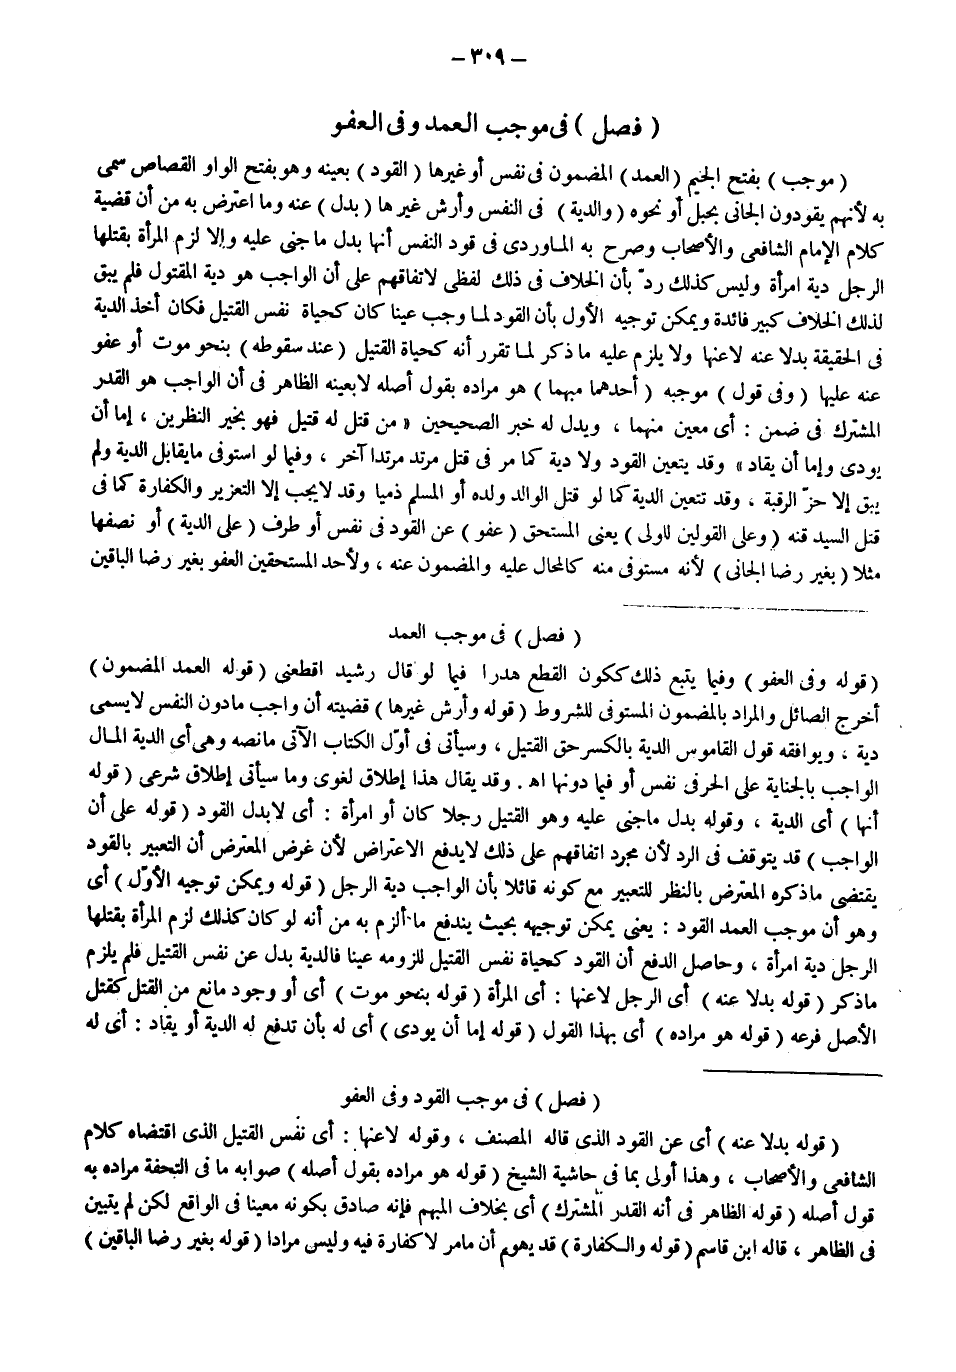 – ٣٠٩ –
( فصل ) فى موجب العمد وفى العفو
( موجب ) بفتح الجيم ( العمد ) المضمون فى نفس أو غيرها ( القود ) بعينه وهو بفتح الواو القصاص سمى
به لأنهم يقودون الجانى بحبل أو نحوه ( والدية ) فى النفس وأرش غيرها ( بدل ) عنه وما اعترض به من أن قضية
كلام الإمام الشافعى والأصحاب وصرح به الماوردى فى قود النفس أنها بدل ما جنى عليه وإلا لزم المرأة بقتلها
الرجل دية امرأة وليس كذلك ردّ بأن الخلاف فى ذلك لفظى لاتفاقهم على أن الواجب هو دية المقتول فلم يبق
لذلك الخلاف كبير فائدة ويمكن توجيه الأول بأن القود لما وجب عينا كان كحياة نفس القتيل فكان أخذ الدية
فى الحقيقة بدلا عنه لاعنها ولا يلزم عليه ما ذكر لما تقرر أنه كحياة القتيل ( عند سقوطه ) بنحو موت أو عفو
عنه عليها ( وفى قول ) موجبه ( أحدهما مبهما ) هو مراده بقول أصله لابعينه الظاهر فى أن الواجب هو القدر
المشترك فى ضمن : أى معين منهما ، ويدل له خبر الصحيحين « من قتل له قتيل فهو بخير النظرين ، إما أن
يودى وإما أن يقاد » وقد يتعين القود ولا دية كما مر فى قتل مرتد مرتدا آخر ، وفيما لو استوفى مايقابل الدية ولم
يبق إلا حزّ الرقبة ، وقد تتعين الدية كما لو قتل الوالد ولده أو المسلم ذميا وقد لايجب إلا التعزير والكفارة كما فى
قتل السيد قنه ( وعلى القولين للولى ) يعنى المستحق ( عفو ) عن القود فى نفس أو طرف ( على الدية ) أو نصفها
مثلا ( بغير رضا الجانى ) لأنه مستوفى منه كالمحال عليه والمضمون عنه ، ولأحد المستحقين العفو بغير رضا الباقين
( فصل ) فى موجب العمد
( قوله وفى العفو ) وفيما يتبع ذلك ككون القطع هدرا فيما لو قال رشيد اقطعنى ( قوله العمد المضمون )
أخرج الصائل والمراد بالمضمون المستوفى للشروط ( قوله وأرش غيرها ) قضيته أن واجب مادون النفس لايسمى
دية ، ويوافقه قول القاموس الدية بالكسر حق القتيل ، وسيأتى فى أوّل الكتاب الآتى مانصه وهى أى الدية المال
الواجب بالجناية على الحر فى نفس أو فيما دونها اه . وقد يقال هذا إطلاق لغوى وما سيأتى إطلاق شرعى ( قوله
أنها ) أى الدية ، وقوله بدل ماجنى عليه وهو القتيل رجلا كان أو امرأة : أى لابدل القود ( قوله على أن
الواجب ) قد يتوقف فى الرد لأن مجرد اتفاقهم على ذلك لايدفع الاعتراض لأن غرض المعترض أن التعبير بالقود
يقتضى ماذكره المعترض بالنظر للتعبير مع كونه قائلا بأن الواجب دية الرجل ( قوله ويمكن توجيه الأوّل ) أى
وهو أن موجب العمد القود : يعنى يمكن توجيهه بحيث يندفع ما ألزم به من أنه لو كان كذلك لزم المرأة بقتلها
الرجل دية امرأة ، وحاصل الدفع أن القود كحياة نفس القتيل للزومه عينا فالدية بدل عن نفس القتيل فلم يلزم
ماذكر ( قوله بدلا عنه ) أى الرجل لاعنها : أى المرأة ( قوله بنحو موت ) أى أو وجود مانع من القتل كقتل
الأصل فرعه ( قوله هو مراده ) أى بهذا القول ( قوله إما أن يودى ) أى له بأن تدفع له الدية أو يقاد : أى له
( فصل ) فى موجب القود وفى العفو
( قوله بدلا عنه ) أى عن القود الذى قاله المصنف ، وقوله لاعنها : أى نفس القتيل الذى اقتضاه كلام
الشافعى والأصحاب ، وهذا أولى بما فى حاشية الشيخ ( قوله هو مراده بقول أصله ) صوابه ما فى التحفة مراده به
قول أصله ( قوله الظاهر فى أنه القدر المشترك ) أى بخلاف المبهم فإنه صادق بكونه معينا فى الواقع لكن لم يتبين
فى الظاهر ، قاله ابن قاسم ( قوله والكفارة ) قد يوهم أن مامر لا كفارة فيه وليس مرادا ( قوله بغير رضا الباقين )